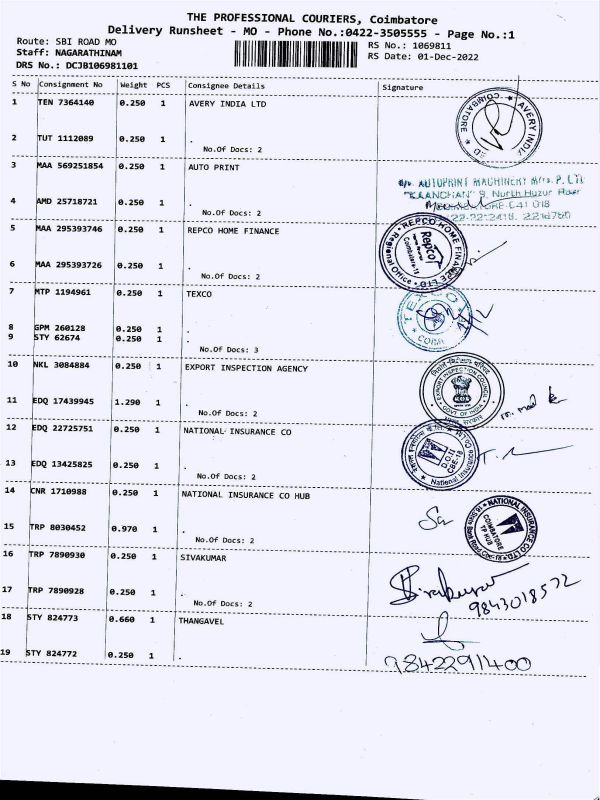 THE PROFESSIONAL COURIERS, Coimbatore
Delivery Runsheet - MO - Phone No.:0422-3505555 - Page No.:1
Route: SBI ROAD MO
Staff: NAGARATHINAM
DRS No.: DCJB106981101
RS No.: 1069811
RS Date: 01-Dec-2022
S No Consignment No Weight PCS Consignee Details Signature
1 TEN 7364140 0.250 1 AVERY INDIA LTD
COIMBATORE AVERY INDIA
2 TUT 1112089 0.250 1 .
No.Of Docs: 2
3 MAA 569251854 0.250 1 AUTO PRINT
AUTOPRINT MACHINERY P. LTD
4 AMD 25718721 0.250 1 .
No.Of Docs: 2
5 MAA 295393746 0.250 1 REPCO HOME FINANCE
REPCO HOME FINANCE LTD
Regional Office
Repco
Coimbatore-18
6 MAA 295393726 0.250 1 .
No.Of Docs: 2
7 MTP 1194961 0.250 1 TEXCO
TEXCO
8 GPM 260128 0.250 1
9 STY 62674 0.250 1 .
No.Of Docs: 3
10 NKL 3084884 0.250 1 EXPORT INSPECTION AGENCY
EXPORT INSPECTION COUNCIL
GOVT OF INDIA
11 EDQ 17439945 1.290 1 .
No.Of Docs: 2
12 EDQ 22725751 0.250 1 NATIONAL INSURANCE CO
National Insurance
13 EDQ 13425825 0.250 1 .
No.Of Docs: 2
14 CNR 1710988 0.250 1 NATIONAL INSURANCE CO HUB
NATIONAL INSURANCE CO LTD.
COIMBATORE
TP HUB
15 TRP 8030452 0.970 1 .
No.Of Docs: 2
16 TRP 7890930 0.250 1 SIVAKUMAR
Sivakumar
9843018572
17 TRP 7890928 0.250 1 .
No.Of Docs: 2
18 STY 824773 0.660 1 THANGAVEL
19 STY 824772 0.250 1 .
9842291400